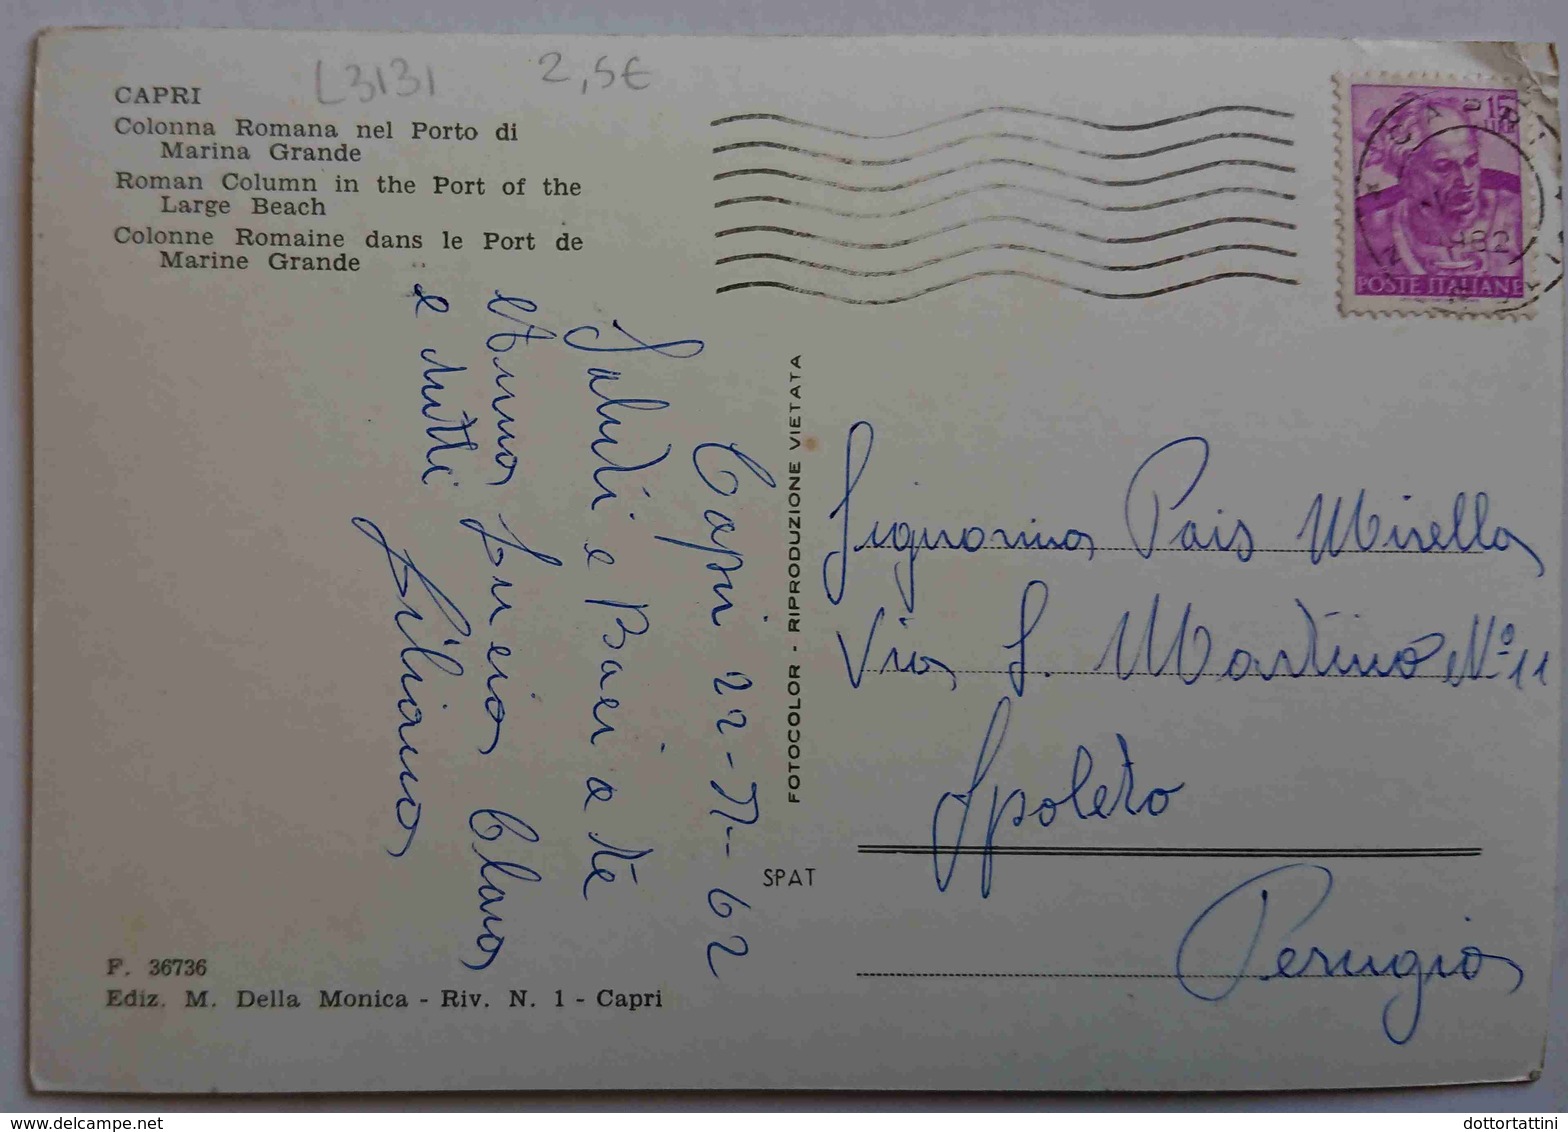 L3131 2,5€
CAPRI
Colonna Romana nel Porto di
Marina Grande
Roman Column in the Port of the
Large Beach
Colonne Romaine dans le Port de
Marine Grande
Capri 22-
62
Saluti e Baci a te
Lucia Clara
e tutti
Liliana
F. 36736
Ediz. M. Della Monica - Riv. N. 1 - Capri
FOTOCOLOR - RIPRODUZIONE VIETATA
SPAT
15
POSTE ITALIANE
CAPRI
Signorina Pais Mirella
Via S. Martino Nº 11
Spoleto
Perugia
dottortattini